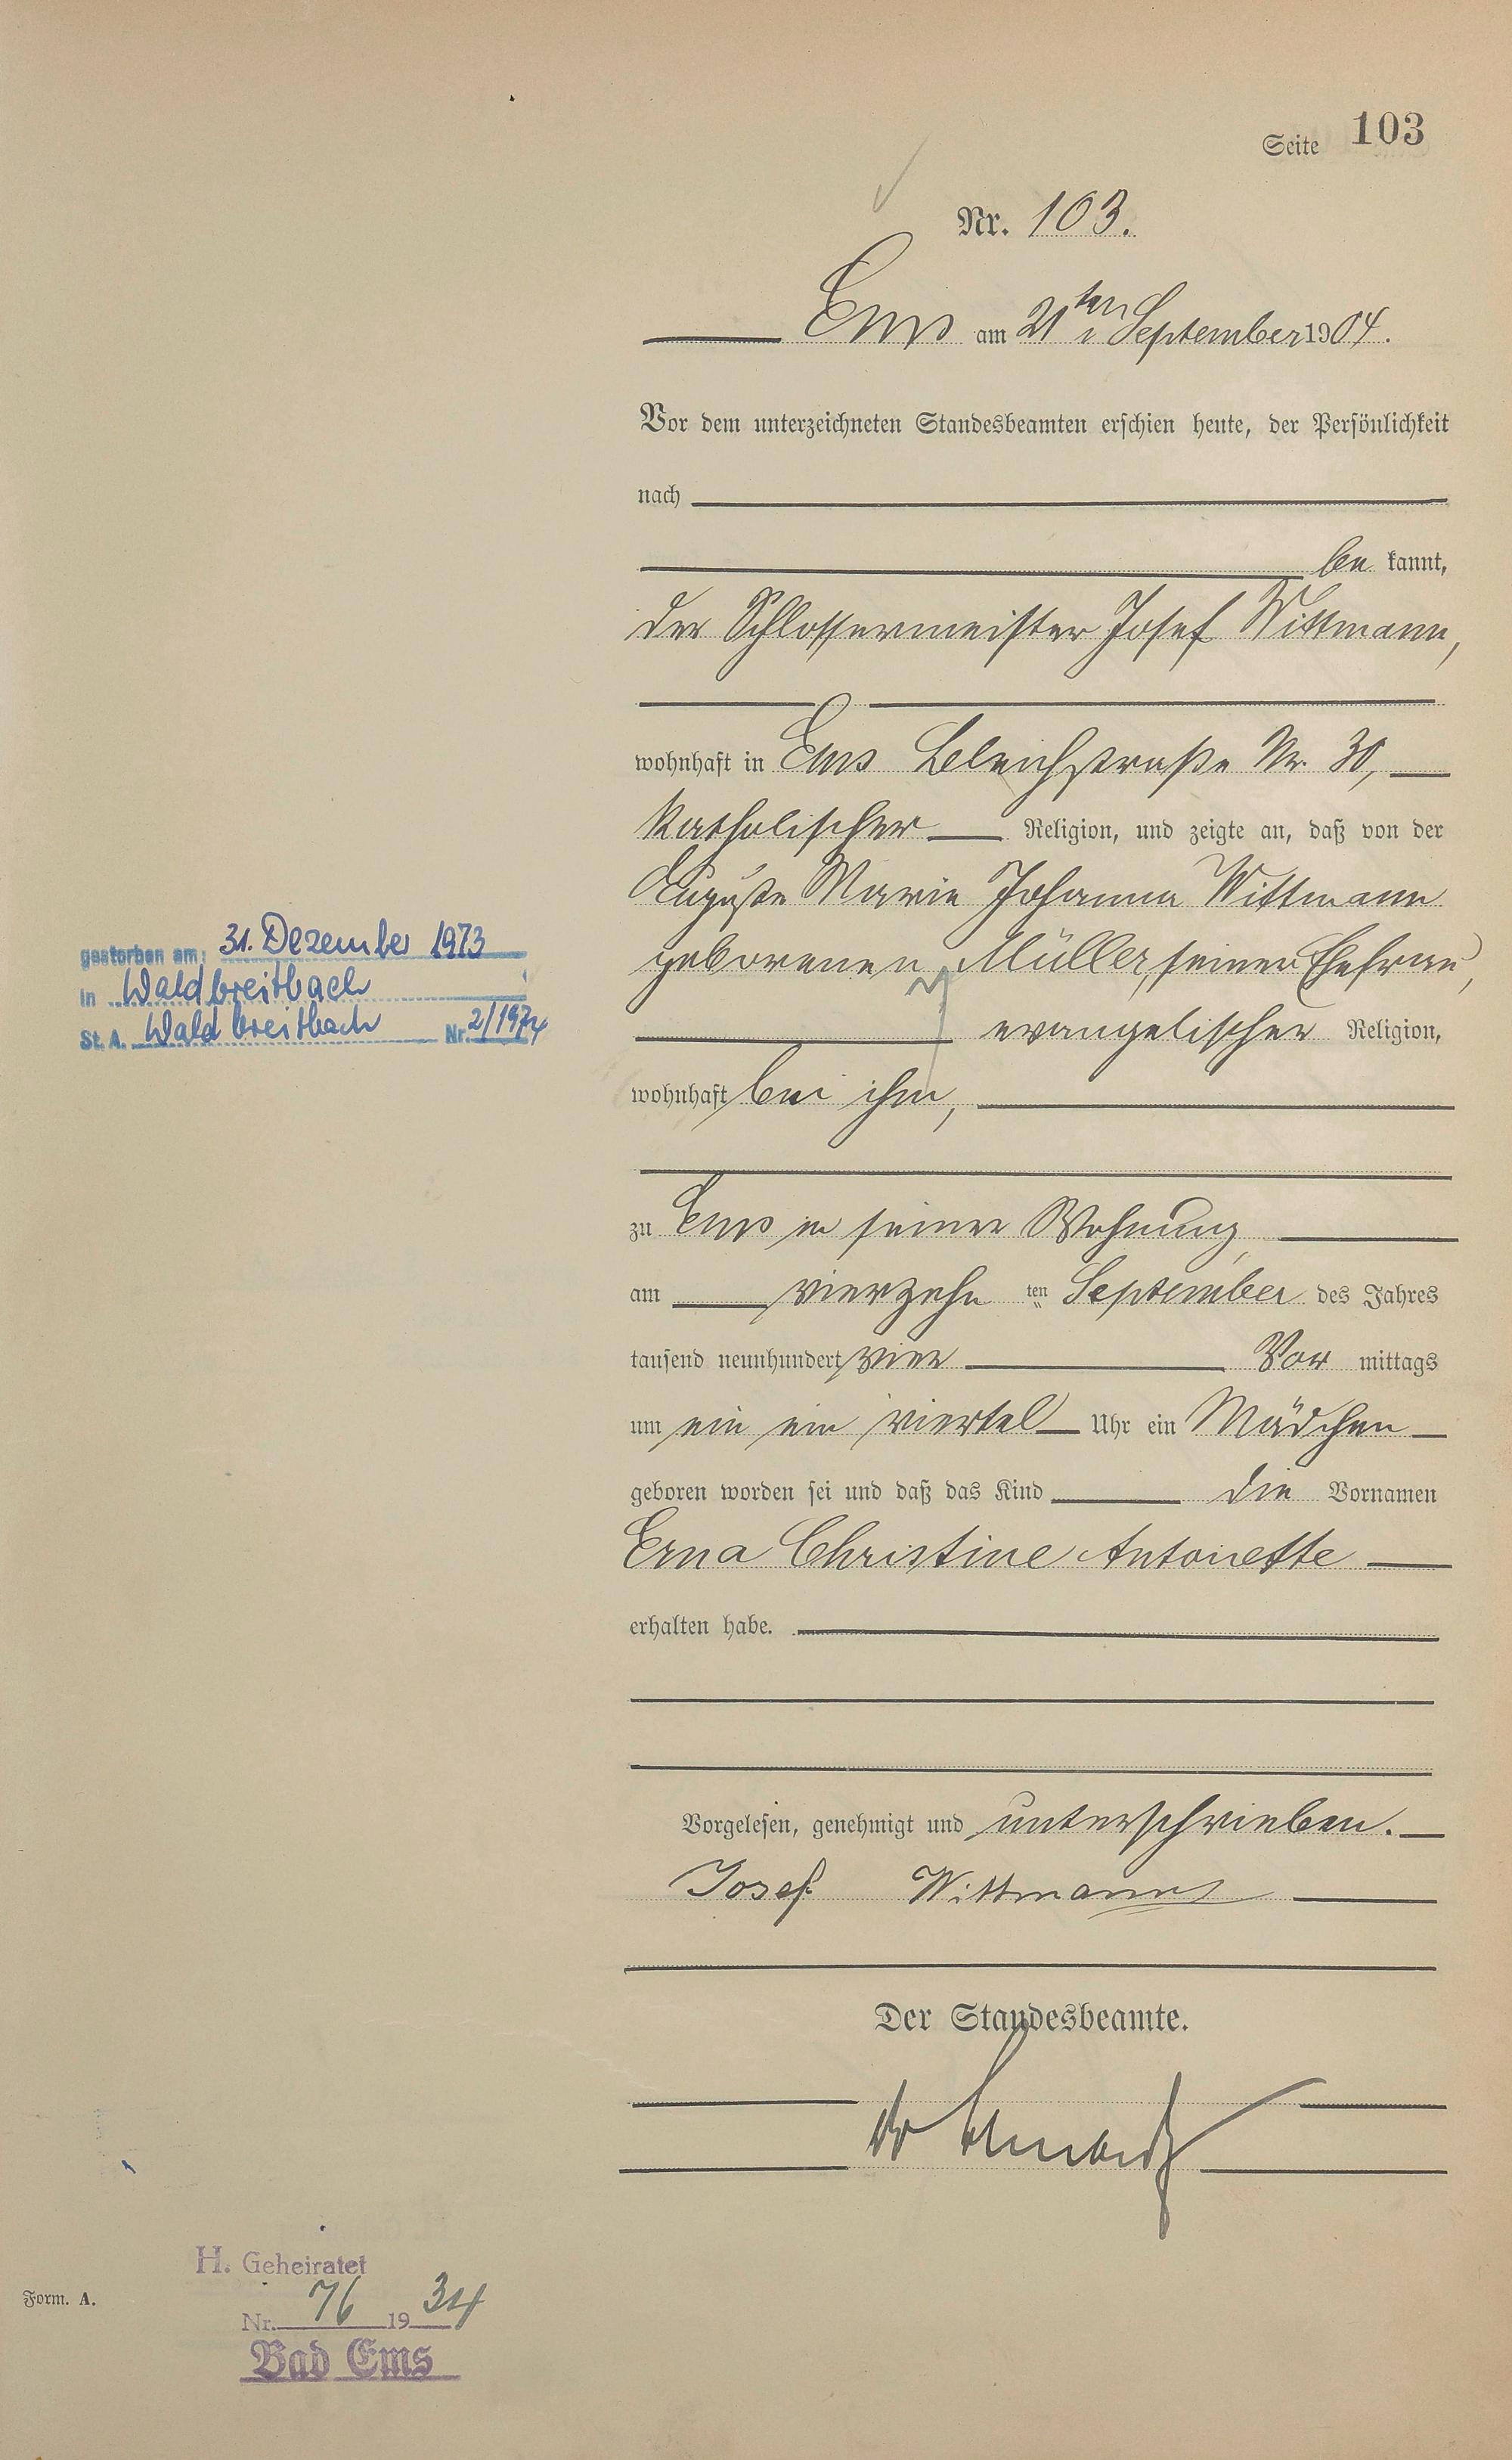 Seite 103
Nr. 103.
Ems am 21ten September 1904.
Vor dem unterzeichneten Standesbeamten erschien heute, der Persönlichkeit
nach
be kannt,
der Schlossermeister Josef Wittmann,
wohnhaft in Ems Bleichstraße Nr. 30,
katholischer Religion, und zeigte an, daß von der
Auguste Marie Johanna Wittmann
geborenen Müller, seiner Ehefrau,
evangelischer Religion,
wohnhaft bei ihm,
zu Ems in seiner Wohnung
am vierzehn ten September des Jahres
tausend neunhundert vier Vor mittags
um ein ein viertel Uhr ein Mädchen
geboren worden sei und daß das Kind die Vornamen
Erna Christine Antonette
erhalten habe.
Vorgelesen, genehmigt und unterschrieben.
Josef Wittmann
Der Standesbeamte.
gestorben am: 31. Dezember 1973
in Waldbreitbach
St. A. Waldbreitbach Nr. 2/1974
H. Geheiratet
Nr. 76 1934
Bad Ems
Form. A.